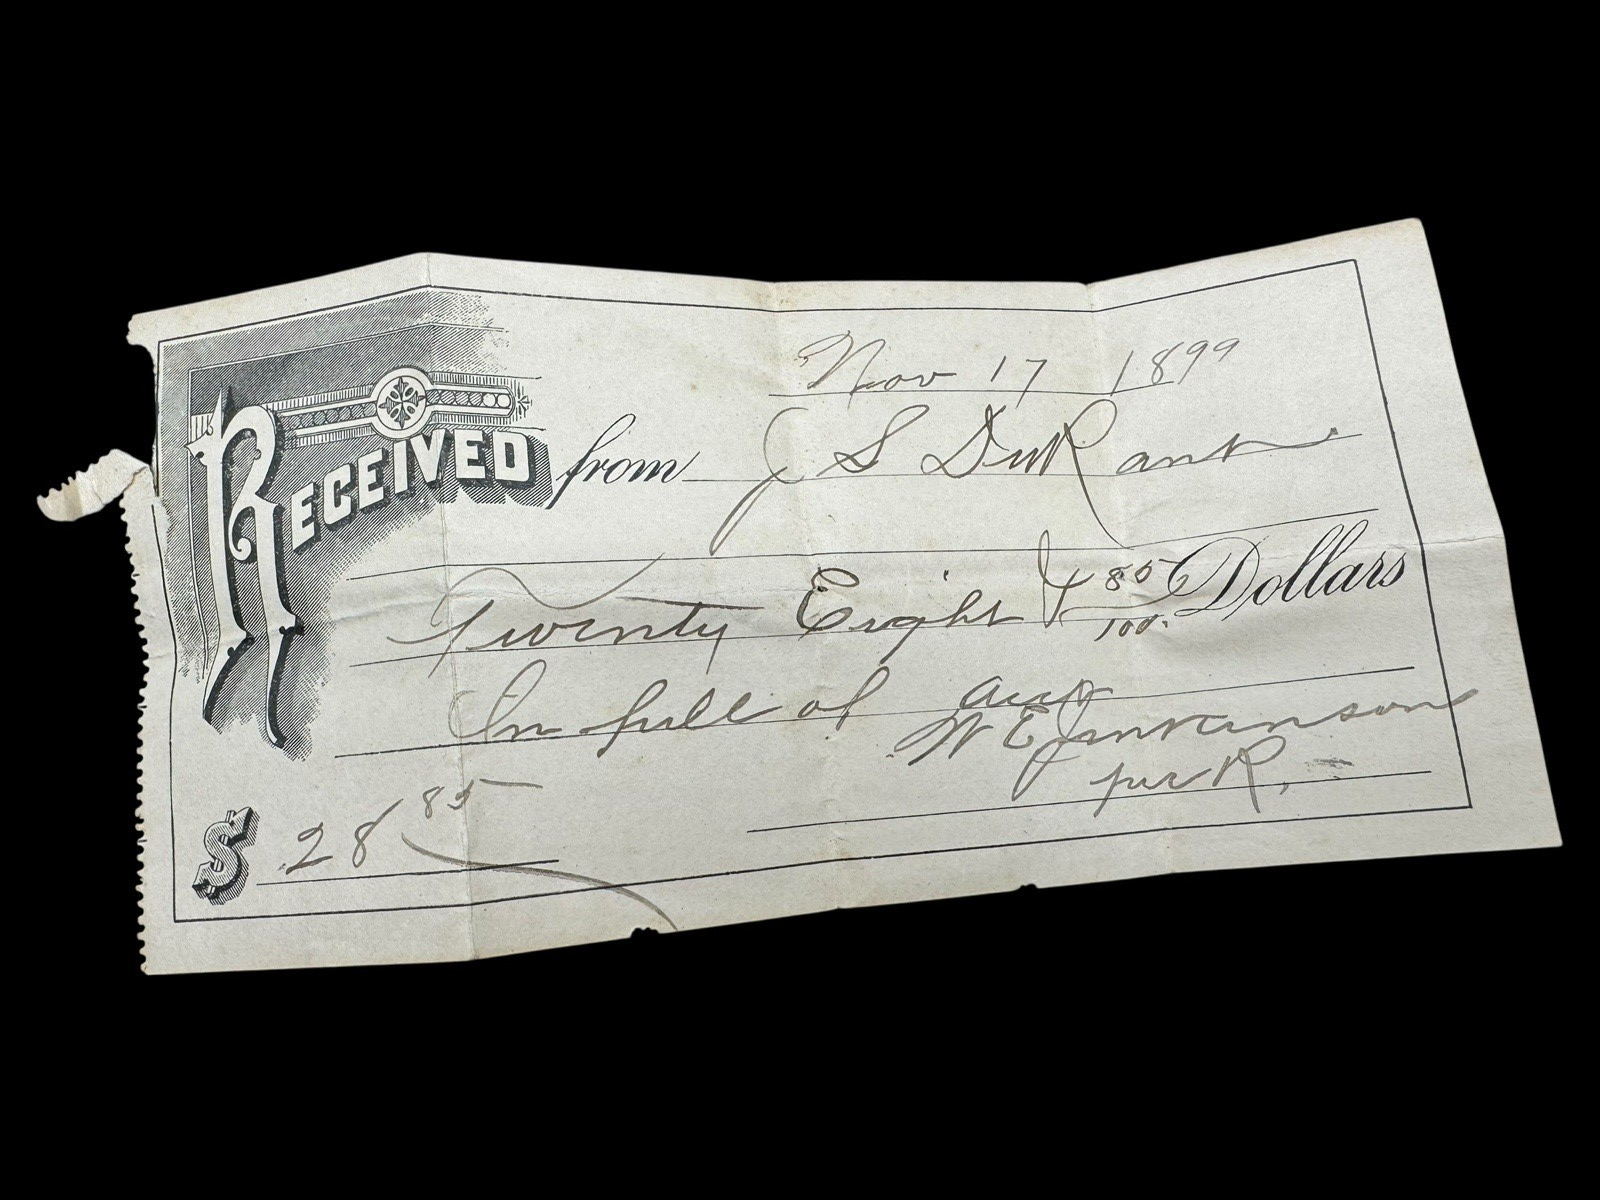 Nov 17 1899
RECEIVED from J S DuRant
Twenty Eight & 85/100. Dollars
In full of acct
W E Jenkinson
per R.
$ 28 85